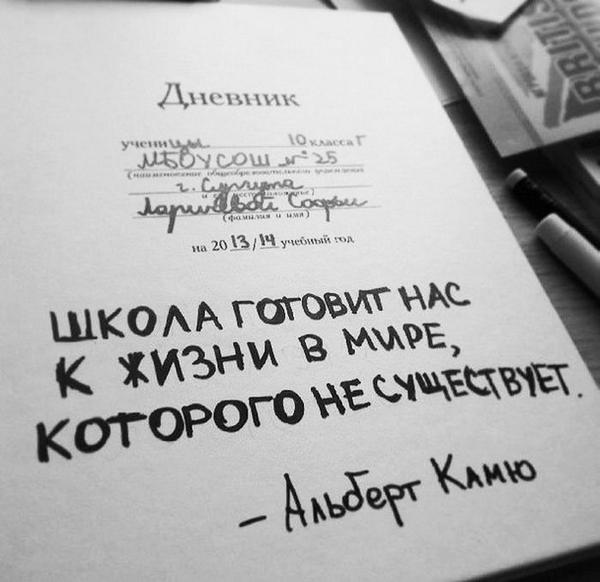 Дневник
ученицы 10 класса Г
МБОУСОШ №25
(наименование общеобразовательного учреждения
г. Сургута
Ларичевой Софьи
(фамилия и имя)
на 2013/14 учебный год
ШКОЛА ГОТОВИТ НАС
К ЖИЗНИ В МИРЕ,
КОТОРОГО НЕ СУЩЕСТВУЕТ.
– Альберт Камю
BRITISH